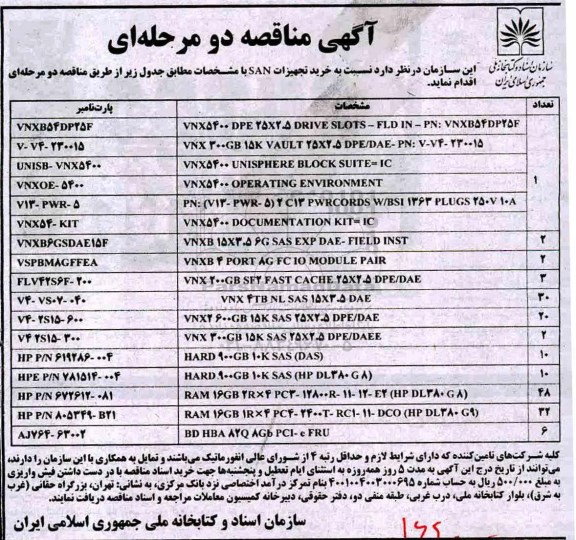 آگهی مناقصه دو مرحله‌ای
سازمان اسناد و کتابخانه ملی
جمهوری اسلامی ایران
این سازمان درنظر دارد نسبت به خرید تجهیزات SAN با مشخصات مطابق جدول زیر از طریق مناقصه دو مرحله‌ای
اقدام نماید.
تعداد مشخصات پارت‌نامبر
VNX۵۴۰۰ DPE ۲۵X۲.۵ DRIVE SLOTS – FLD IN – PN: VNXB۵۴DP۲۵F VNXB۵۴DP۲۵F
VNX ۳۰۰GB ۱۵K VAULT ۲۵X۲.۵ DPE/DAE- PN: V-V۴- ۲۳۰۰۱۵ V- V۴- ۲۳۰۰۱۵
VNX۵۴۰۰ UNISPHERE BLOCK SUITE= IC UNISB- VNX۵۴۰۰
۱ VNX۵۴۰۰ OPERATING ENVIRONMENT VNXOE- ۵۴۰۰
PN: (V۱۳- PWR- ۵) ۲ C۱۳ PWRCORDS W/BSI ۱۳۶۳ PLUGS ۲۵۰V ۱۰A V۱۳- PWR- ۵
VNX۵۴۰۰ DOCUMENTATION KIT= IC VNX۵۴- KIT
۲ VNXB ۱۵X۳.۵ ۶G SAS EXP DAE- FIELD INST VNXB۶GSDAE۱۵F
۲ VNXB ۴ PORT ۸G FC IO MODULE PAIR VSPBM۸GFFEA
۳ VNX ۲۰۰GB SF۲ FAST CACHE ۲۵X۲.۵ DPE/DAE FLV۴۲S۶F- ۲۰۰
۳۰ VNX ۴TB NL SAS ۱۵X۳.۵ DAE V۴- VS۰۷- ۰۴۰
۲۰ VNX۲ ۶۰۰GB ۱۵K SAS ۲۵X۲.۵ DPE/DAE V۴- ۲S۱۵- ۶۰۰
۲ VNX ۳۰۰GB ۱۵K SAS ۲۵X۲.۵ DPE/DAEE V۴ ۲S۱۵- ۳۰۰
۱۰ HARD ۹۰۰GB ۱۰K SAS (DAS) HP P/N ۶۱۹۲۸۶- ۰۰۴
۱۰ HARD ۹۰۰GB ۱۰K SAS (HP DL۳۸۰ G۸) HPE P/N ۷۸۱۵۱۴- ۰۰۴
۴۸ RAM ۱۶GB ۲R×۴ PC۳- ۱۲۸۰۰R- ۱۱- ۱۲- E۲ (HP DL۳۸۰ G۸) HP P/N ۶۷۲۶۱۲- ۰۸۱
۳۲ RAM ۱۶GB ۱R×۴ PC۴- ۲۴۰۰T- RC۱- ۱۱- DCO (HP DL۳۸۰ G۹) HP P/N ۸۰۵۳۴۹- B۲۱
۶ BD HBA ۸۲Q ۸Gb PCI- e FRU AJ۷۶۴- ۶۳۰۰۲
کلیه شرکت‌های تامین‌کننده که دارای شرایط لازم و حداقل رتبه ۴ از شورای عالی انفورماتیک می‌باشند و تمایل به همکاری با این سازمان را دارند،
می‌توانند از تاریخ درج این آگهی به مدت ۵ روز همه‌روزه به استثنای ایام تعطیل و پنجشنبه‌ها جهت خرید اسناد مناقصه با در دست داشتن فیش واریزی
به مبلغ ۵۰۰/۰۰۰ ریال به حساب شماره ۴۰۰۱۰۰۴۰۰۳۰۰۰۶۹۵ بنام تمرکز درآمد اختصاصی نزد بانک مرکزی، به نشانی: تهران، بزرگراه حقانی (غرب
به شرق)، بلوار کتابخانه ملی، درب غربی، طبقه منفی دو، دفتر حقوقی، دبیرخانه کمیسیون معاملات مراجعه و اسناد مناقصه دریافت نمایند.
سازمان اسناد و کتابخانه ملی جمهوری اسلامی ایران